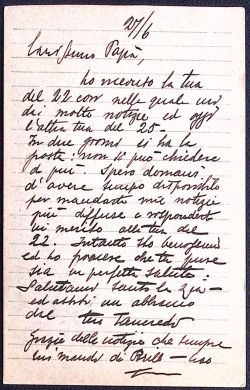 27/6
Carissimo Papà,
ho ricevuto la tua
del 22 corr nella quale mi
dai molte notizie, ed oggi
l'altra tua del 25-
In due giorni si ha la
posta: non si può chiedere
di più. Spero domani
d'avere tempo disponibile
per mandarti mie notizie
più diffuse e risponderti
in merito alla tua del
22. Intanto sto benissimo
ed ho piacere che tu pure
sia in perfetta salute.
Salutami tanto la
ed abbiti un abbraccio
dal tuo Tancredo
Grazie delle notizie che sempre
mi mandi di